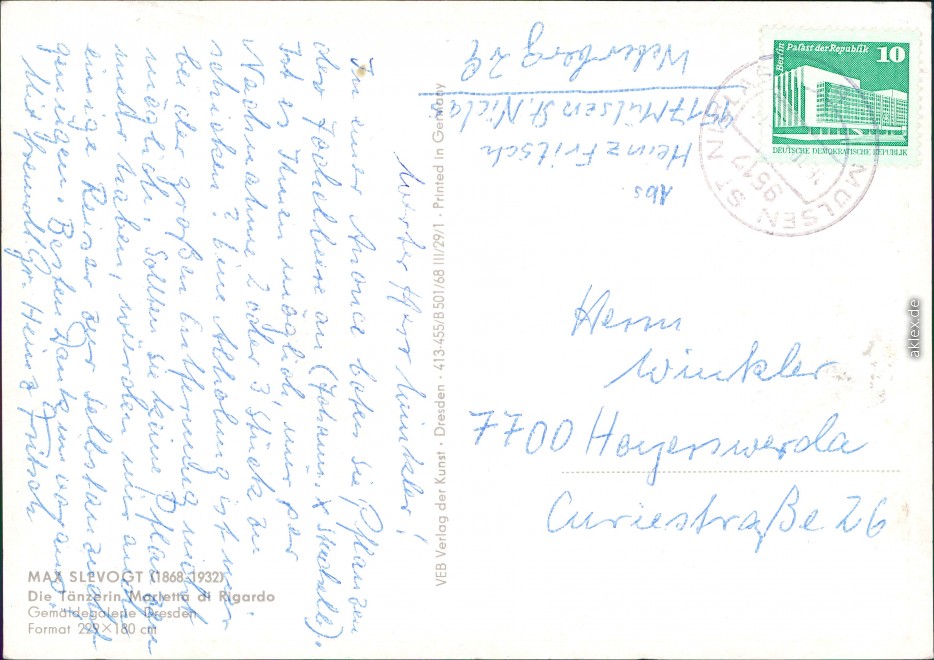 Werter Herr Winkler!
In einer Anonce boten Sie Pflanzen
der Jochelbeere an (Johann. x Stachelb.).
Ist es Ihnen möglich, mir per
Nachnahme 2 oder 3 Stück zu
schicken? Eine Abholung ist mir
bei der großen Entfernung nicht
möglich. Sollten Sie keine Pflanzen
mehr haben, würden mir auch
einige Reiser zur Selbstanzucht
genügen. Besten Dank im voraus.
Mit freundl. Gr. Heinz Fritsch
MAX SLEVOGT (1868-1932)
Die Tänzerin Marietta di Rigardo
Gemäldegalerie Dresden
Format 229×180 cm
VEB Verlag der Kunst · Dresden · 413-455/B 501/68 III/29/1 · Printed in Germany
Abs.
Heinz Fritsch
9517 Mülsen St. Niclas
Weberberg 29
Berlin Palast der Republik
10
DEUTSCHE DEMOKRATISCHE REPUBLIK
9512
MÜLSEN ST
Herrn
Winkler
7700 Hoyerswerda
Curiestraße 26
aklex.de